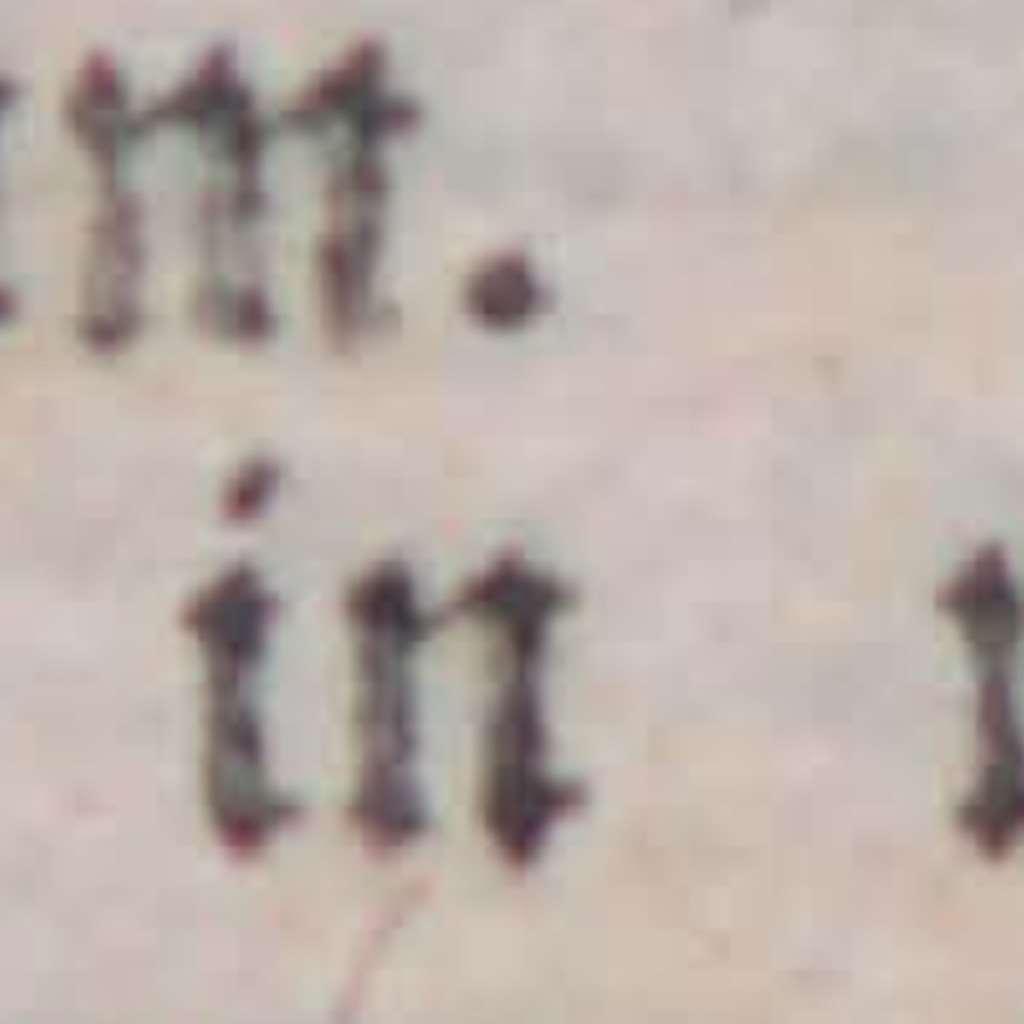 m.
in